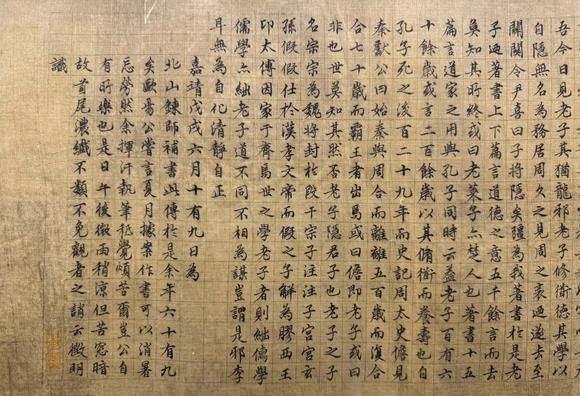 吾今日見老子其猶龍邪老子修衜德其學以
自隱無名為務居周久之見周之衰迺遂去至
關關令尹喜曰子將隱矣彊為我著書於是老
子迺著書上下篇言道德之意五千餘言而去
莫知其所終或曰老萊子亦楚人也著書十五
篇言道家之用與孔子同時云蓋老子百有六
十餘歲或言二百餘歲以其脩衜而養壽也自
孔子死之後百二十九年而史記周太史儋見
秦獻公曰始秦與周合而離離五百歲而復合
合七十歲而霸王者出焉或曰儋即老子或曰
非也世莫知其然否老子隱君子也老子之子
名宗宗為魏將封於段干宗子注注子宮宮玄
孫假假仕於漢孝文帝而假之子解為膠西王
卬太傅因家于齊焉世之學老子者則絀儒學
儒學亦絀老子道不同不相為謀豈謂是邪李
耳無為自化清靜自正
嘉靖戊戌六月十有九日為
北山鍊師補書此傳於是余年六十有九
矣歐昜公嘗言夏月據案作書可以消暑
忘勞然余揮汗執筆秖覺煩苦爾豈公自
有所樂也是日午後微雨稍涼但苦窓暗
故首尾濃纖不類不免觀者之誚云徵明
識